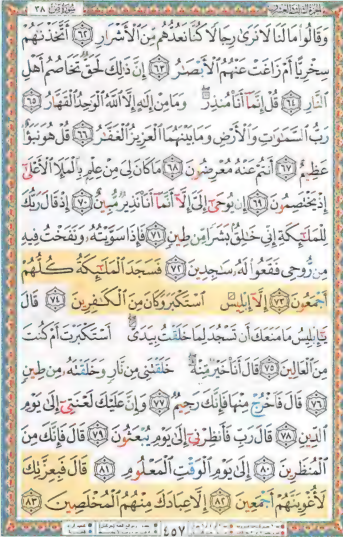 سُورَةُ صٓ ٣٨
وَقَالُوا۟ مَا لَنَا لَا نَرَىٰ رِجَالًا كُنَّا نَعُدُّهُم مِّنَ ٱلْأَشْرَارِ ٦٢ أَتَّخَذْنَٰهُمْ
سِخْرِيًّا أَمْ زَاغَتْ عَنْهُمُ ٱلْأَبْصَٰرُ ٦٣ إِنَّ ذَٰلِكَ لَحَقٌّ تَخَاصُمُ أَهْلِ
ٱلنَّارِ ٦٤ قُلْ إِنَّمَآ أَنَا۠ مُنذِرٌ وَمَا مِنْ إِلَٰهٍ إِلَّا ٱللَّهُ ٱلْوَٰحِدُ ٱلْقَهَّارُ ٦٥
رَبُّ ٱلسَّمَٰوَٰتِ وَٱلْأَرْضِ وَمَا بَيْنَهُمَا ٱلْعَزِيزُ ٱلْغَفَّٰرُ ٦٦ قُلْ هُوَ نَبَؤٌا۟
عَظِيمٌ ٦٧ أَنتُمْ عَنْهُ مُعْرِضُونَ ٦٨ مَا كَانَ لِىَ مِنْ عِلْمٍۭ بِٱلْمَلَإِ ٱلْأَعْلَىٰٓ
إِذْ يَخْتَصِمُونَ ٦٩ إِن يُوحَىٰٓ إِلَىَّ إِلَّآ أَنَّمَآ أَنَا۠ نَذِيرٌ مُّبِينٌ ٧٠ إِذْ قَالَ رَبُّكَ
لِلْمَلَٰٓئِكَةِ إِنِّى خَٰلِقٌۢ بَشَرًا مِّن طِينٍ ٧١ فَإِذَا سَوَّيْتُهُۥ وَنَفَخْتُ فِيهِ
مِن رُّوحِى فَقَعُوا۟ لَهُۥ سَٰجِدِينَ ٧٢ فَسَجَدَ ٱلْمَلَٰٓئِكَةُ كُلُّهُمْ
أَجْمَعُونَ ٧٣ إِلَّآ إِبْلِيسَ ٱسْتَكْبَرَ وَكَانَ مِنَ ٱلْكَٰفِرِينَ ٧٤ قَالَ
يَٰٓإِبْلِيسُ مَا مَنَعَكَ أَن تَسْجُدَ لِمَا خَلَقْتُ بِيَدَىَّ أَسْتَكْبَرْتَ أَمْ كُنتَ
مِنَ ٱلْعَالِينَ ٧٥ قَالَ أَنَا۠ خَيْرٌ مِّنْهُ خَلَقْتَنِى مِن نَّارٍ وَخَلَقْتَهُۥ مِن طِينٍ
٧٦ قَالَ فَٱخْرُجْ مِنْهَا فَإِنَّكَ رَجِيمٌ ٧٧ وَإِنَّ عَلَيْكَ لَعْنَتِىٓ إِلَىٰ يَوْمِ
ٱلدِّينِ ٧٨ قَالَ رَبِّ فَأَنظِرْنِىٓ إِلَىٰ يَوْمِ يُبْعَثُونَ ٧٩ قَالَ فَإِنَّكَ مِنَ
ٱلْمُنظَرِينَ ٨٠ إِلَىٰ يَوْمِ ٱلْوَقْتِ ٱلْمَعْلُومِ ٨١ قَالَ فَبِعِزَّتِكَ
لَأُغْوِيَنَّهُمْ أَجْمَعِينَ ٨٢ إِلَّا عِبَادَكَ مِنْهُمُ ٱلْمُخْلَصِينَ ٨٣
٤٥٧